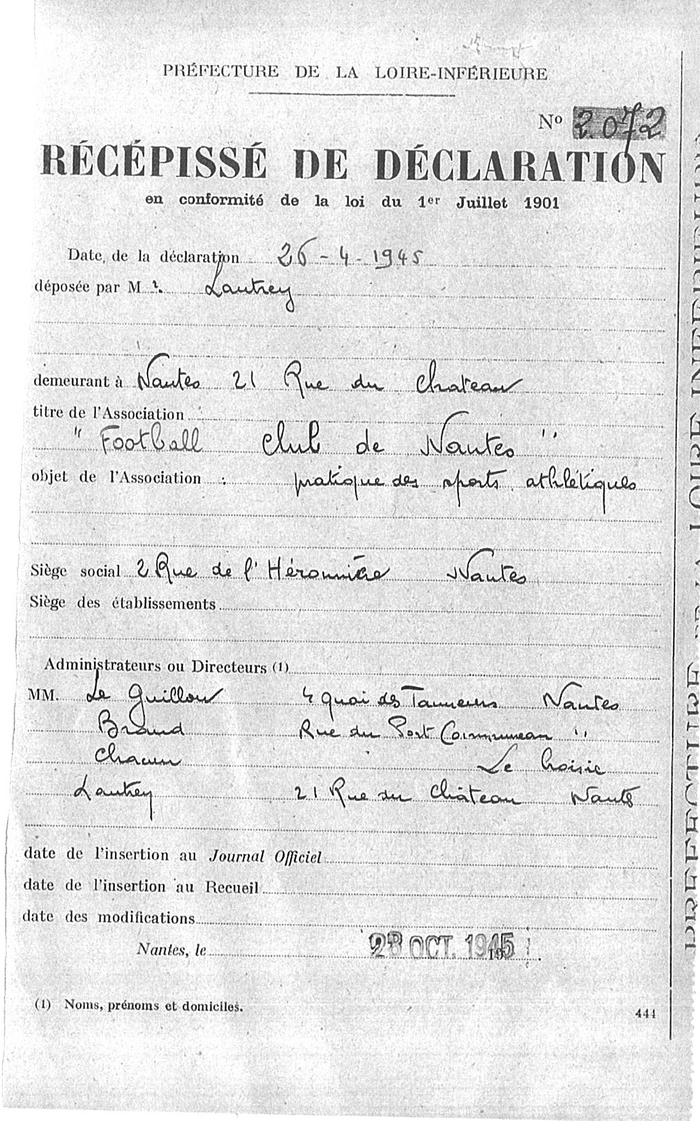 PRÉFECTURE DE LA LOIRE-INFÉRIEURE
N° 2.072
RÉCÉPISSÉ DE DÉCLARATION
en conformité de la loi du 1er Juillet 1901
Date, de la déclaration 26-4-1945
déposée par M r. Lautrey
demeurant à Nantes 21 Rue du Chateau
titre de l'Association
" Football Club de Nantes "
objet de l'Association : pratique des sports athlétiques
Siège social 2 Rue de l'Héronnière Nantes
Siège des établissements
Administrateurs ou Directeurs (1)
MM. Le Guillou 4 quai des Tanneurs Nantes
Braud Rue du Port Communeau "
Chacun Le
Lautrey 21 Rue du Château Nantes
date de l'insertion au Journal Officiel
date de l'insertion au Recueil
date des modifications
Nantes, le 23 OCT. 1945
(1) Noms, prénoms et domiciles.
441